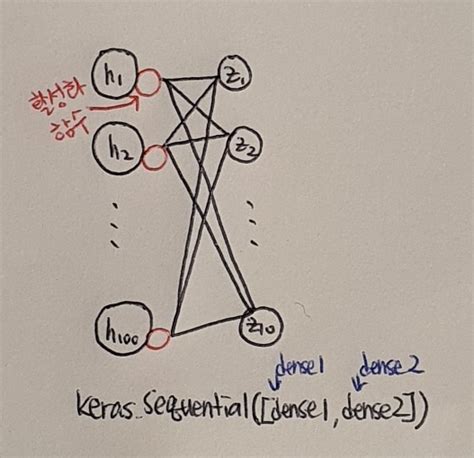 h1
z1
활성화
함수
h2
z2
h100
z10
dense1 dense2
keras.Sequential([dense1, dense2])